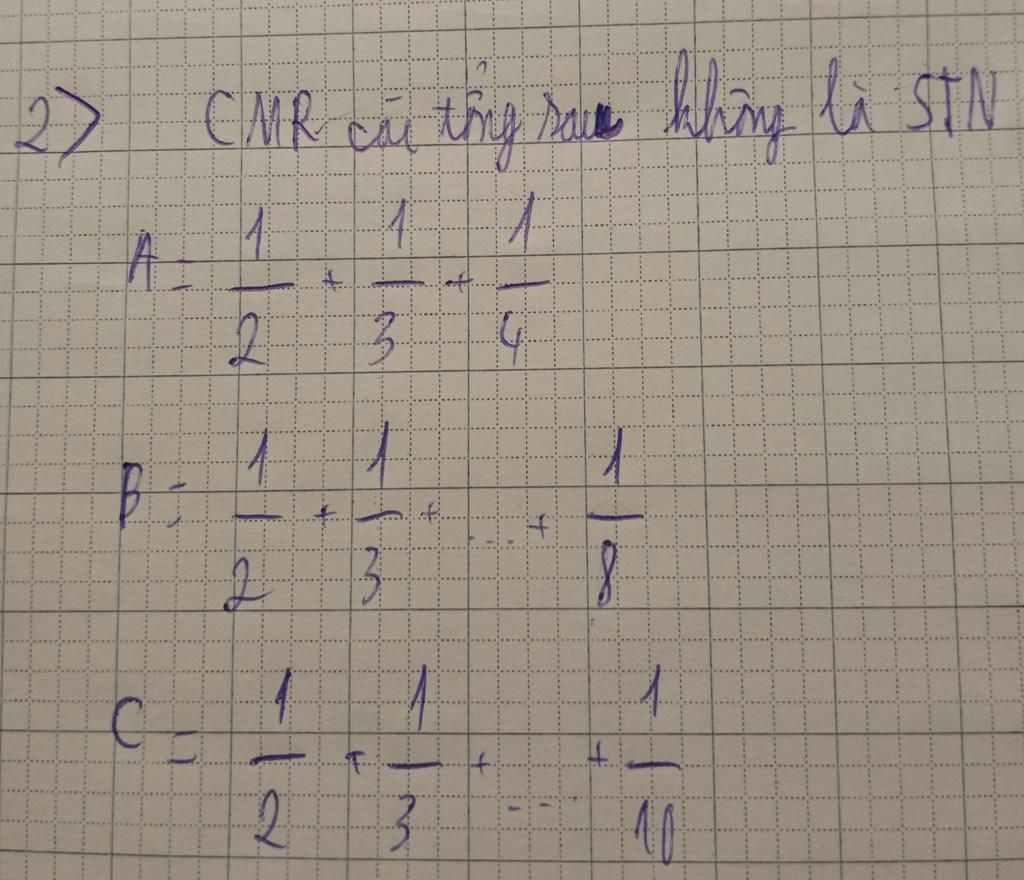 2> CMR các tổng sau không là STN
A = 1/2 + 1/3 + 1/4
B = 1/2 + 1/3 + ... + 1/8
C = 1/2 + 1/3 + ... + 1/10